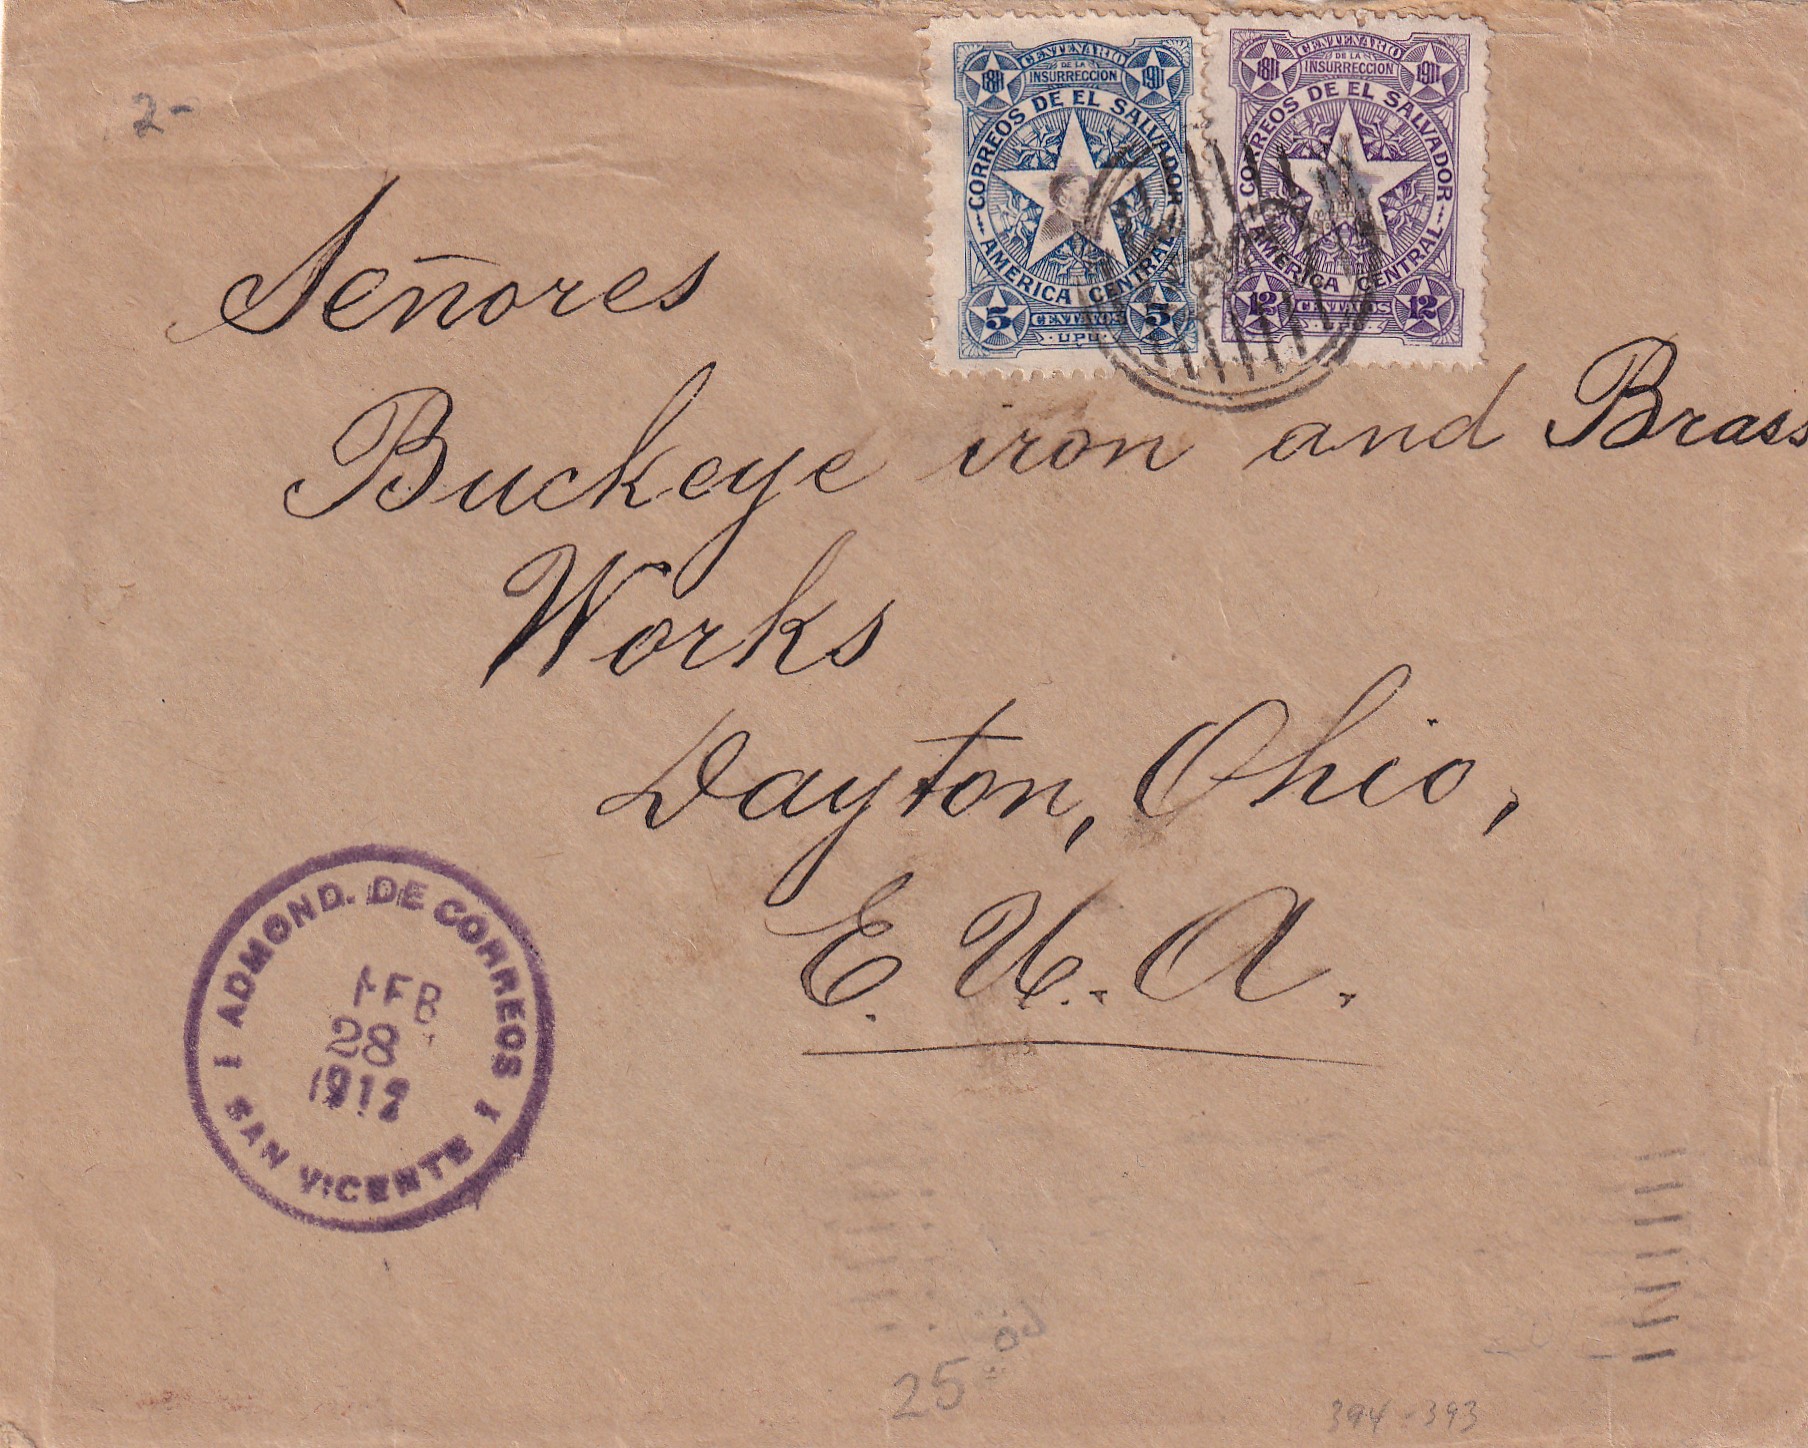 2-
1811 CENTENARIO 1911
DE LA
INSURRECCION
CORREOS DE EL SALVADOR
AMERICA CENTRAL
5 CENTAVOS 5
UPU
1811 CENTENARIO 1911
DE LA
INSURRECCION
CORREOS DE EL SALVADOR
AMERICA CENTRAL
12 CENTAVOS 12
UPU
Señores
Buckeye iron and Brass
Works
Dayton, Ohio,
E. U. A.
ADMOND. DE CORREOS
FEB
28
1912
SAN VICENTE
25
394-393